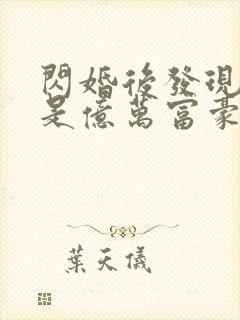 閃婚後發現
是億萬富豪
葉天儀